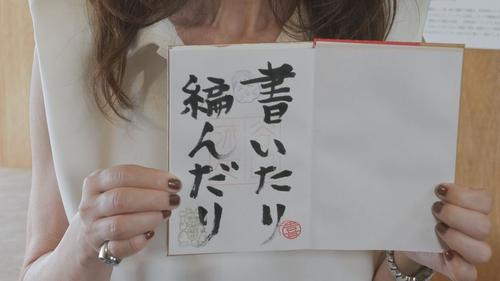 書いたり
編んだり